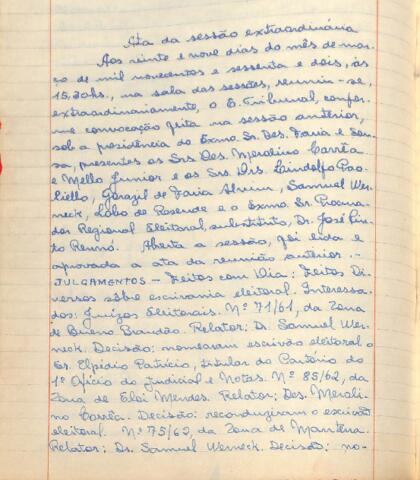 Ata da sessão extraordinária
Aos vinte e nove dias do mês de mar-
ço de mil novecentos e sessenta e dois, às
15,30hs., na sala das sessões, reuniu-se,
extraordinariamente, o E. Tribunal, confor-
me convocação feita na sessão anterior,
sob a presidência do Exmo. Sr. Des. Faria e Sou-
sa, presentes os Srs. Des. Merolino Corrêa
e Mello Junior e os Srs. Drs. Lindolfo Pao-
liello, Gorazil de Faria Alvim, Samuel Wer-
neck, Lobo de Rosende e o Exmo. Sr. Procura-
dor Regional Eleitoral, substituto, Dr. José Pin-
to Renno. Aberta a sessão, foi lida e
aprovada a ata da reunião anterior. -
JULGAMENTOS - Feitos com Dia: Feitos Di-
versos sôbre escrivania eleitoral. Interessa-
dos: Juízos Eleitorais. Nº 71/61, da Zona
de Bueno Brandão. Relator: Dr. Samuel Wer-
neck. Decisão: nomearam escrivão eleitoral o
Sr. Elpidio Patrício, titular do Cartório do
1º Ofício do Judicial e Notas. Nº 85/62, da
Zona de Eloi Mendes. Relator: Des. Meroli-
no Corrêa. Decisão: reconduziram o escrivão
eleitoral. Nº 75/62, da Zona de Mantena.
Relator: Dr. Samuel Werneck. Decisão: no-